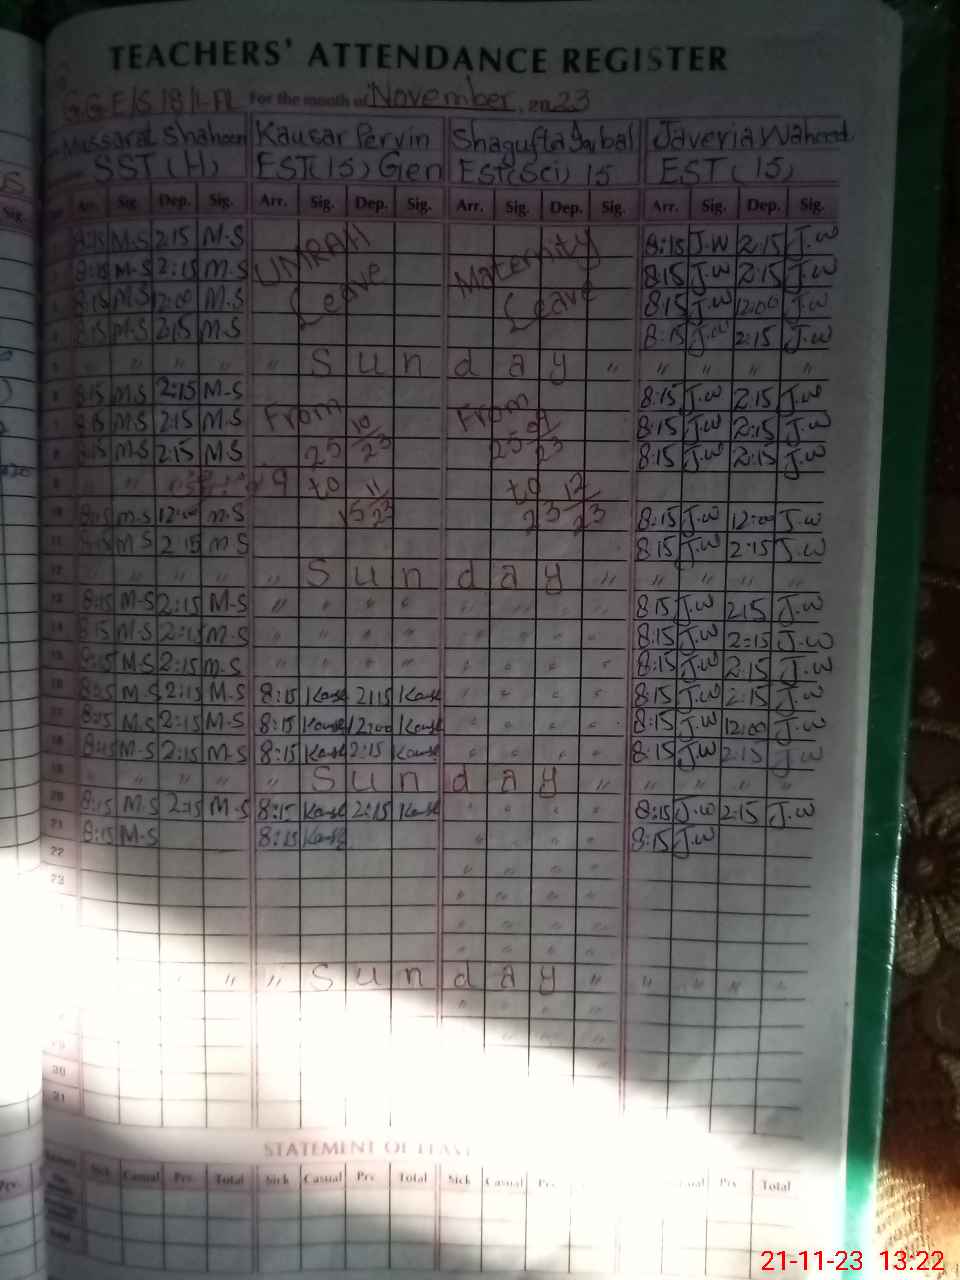 TEACHERS' ATTENDANCE REGISTER
G.G.E/S 18/1-AL For the month of November, 2023
Mussarat Shaheen Kausar Pervin Shagufta Iqbal Javeria Waheed
SST (H) EST(15) Gen EST(Sci) 15 EST (15)
Arr. Sig. Dep. Sig. Arr. Sig. Dep. Sig. Arr. Sig. Dep. Sig. Arr. Sig. Dep. Sig.
8:15 M-S 2:15 M-S UMRAH Maternity 8:15 J.W 2:15 J.W
8:15 M-S 2:15 M-S Leave Leave 8:15 J.W 2:15 J.W
8:15 M-S 12:00 M-S 8:15 J.W 12:00 J.W
8:15 M-S 2:15 M-S 8:15 J.W 2:15 J.W
" " " " " Sunday "
8:15 M-S 2:15 M-S From From 8:15 J.W 2:15 J.W
8:15 M-S 2:15 M-S 25 10/23 25 9/23 8:15 J.W 2:15 J.W
8:15 M-S 2:15 M-S 8:15 J.W 2:15 J.W
9 to to
10 8:15 M-S 12:00 M-S 15 11/23 23 12/23 8:15 J.W 12:00 J.W
11 8:15 M-S 2:15 M-S 8:15 J.W 2:15 J.W
12 " " " " " Sunday " " " " "
13 8:15 M-S 2:15 M-S " " " " " " " " 8:15 J.W 2:15 J.W
14 8:15 M-S 2:15 M-S " " " " " " " " 8:15 J.W 2:15 J.W
15 8:15 M-S 2:15 M-S " " " " " " " " 8:15 J.W 2:15 J.W
16 8:15 M-S 2:15 M-S 8:15 Kausr 2:15 Kausr " " " " 8:15 J.W 2:15 J.W
17 8:15 M-S 2:15 M-S 8:15 Kausr 12:00 Kausr " " " " 8:15 J.W 12:00 J.W
18 8:15 M-S 2:15 M-S 8:15 Kausr 2:15 Kausr " " " " 8:15 J.W 2:15 J.W
19 " " " " " Sunday " " " " "
20 8:15 M-S 2:15 M-S 8:15 Kausr 2:15 Kausr " " " " 8:15 J.W 2:15 J.W
21 8:15 M-S 8:15 Kausr " " " " 8:15 J.W
22 " " " "
23 " " " "
" " " "
" " " "
" " " Sunday " " " " "
" " " "
" " " "
29 "
30
31
STATEMENT OF LEAVE
Sick Casual Prv. Total Sick Casual Prv. Total Sick Casual Prv. Casual Prv. Total
21-11-23 13:22